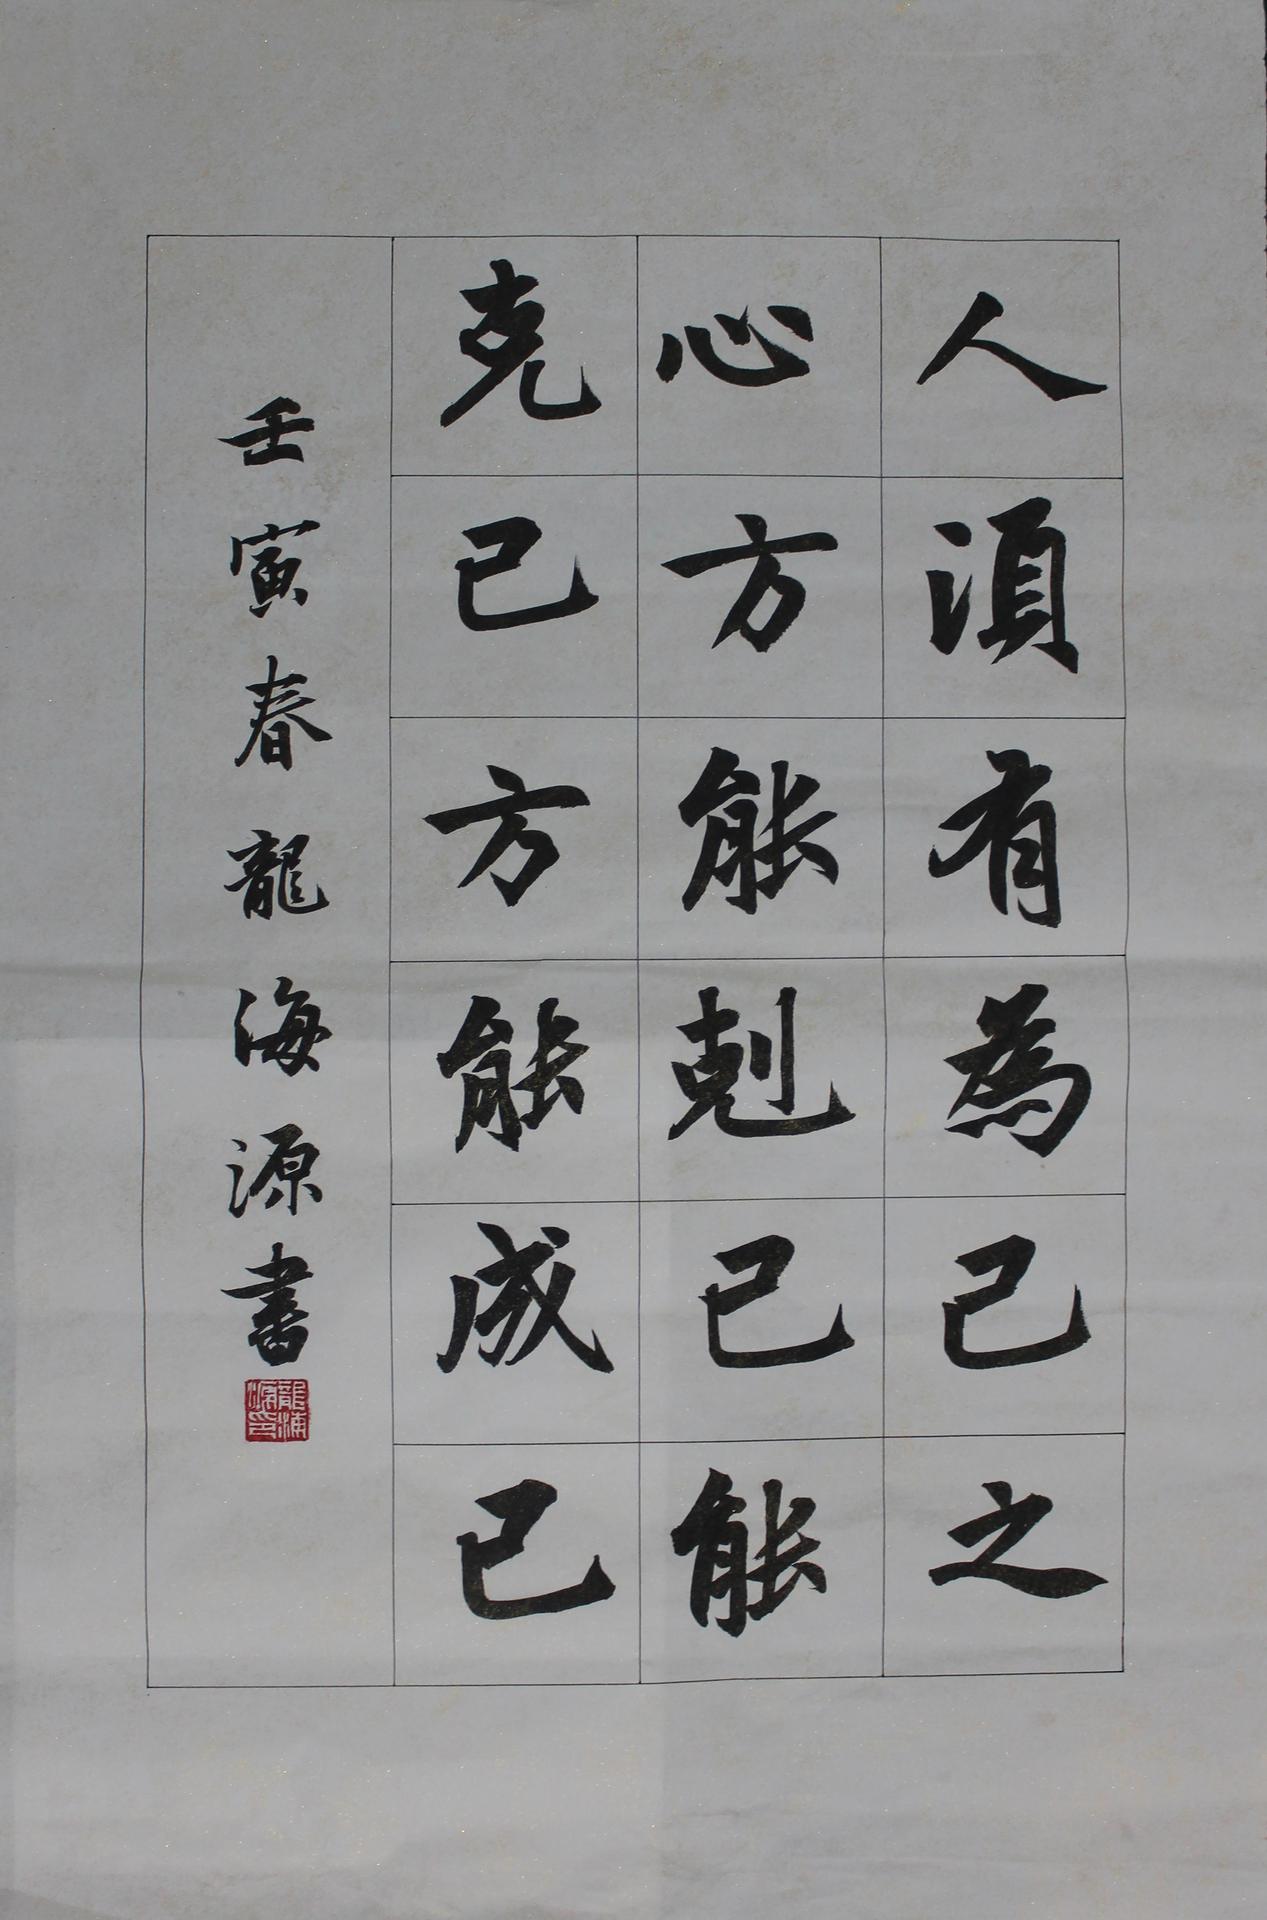 人須有為己之
心方能剋己能
克己方能成己
壬寅春龍海源書
龍海源印